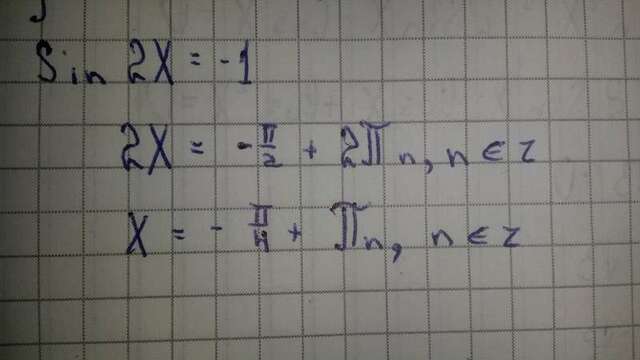 Sin 2X = -1
2X = -π/2 + 2πn, n ∈ z
X = -π/4 + πn, n ∈ z